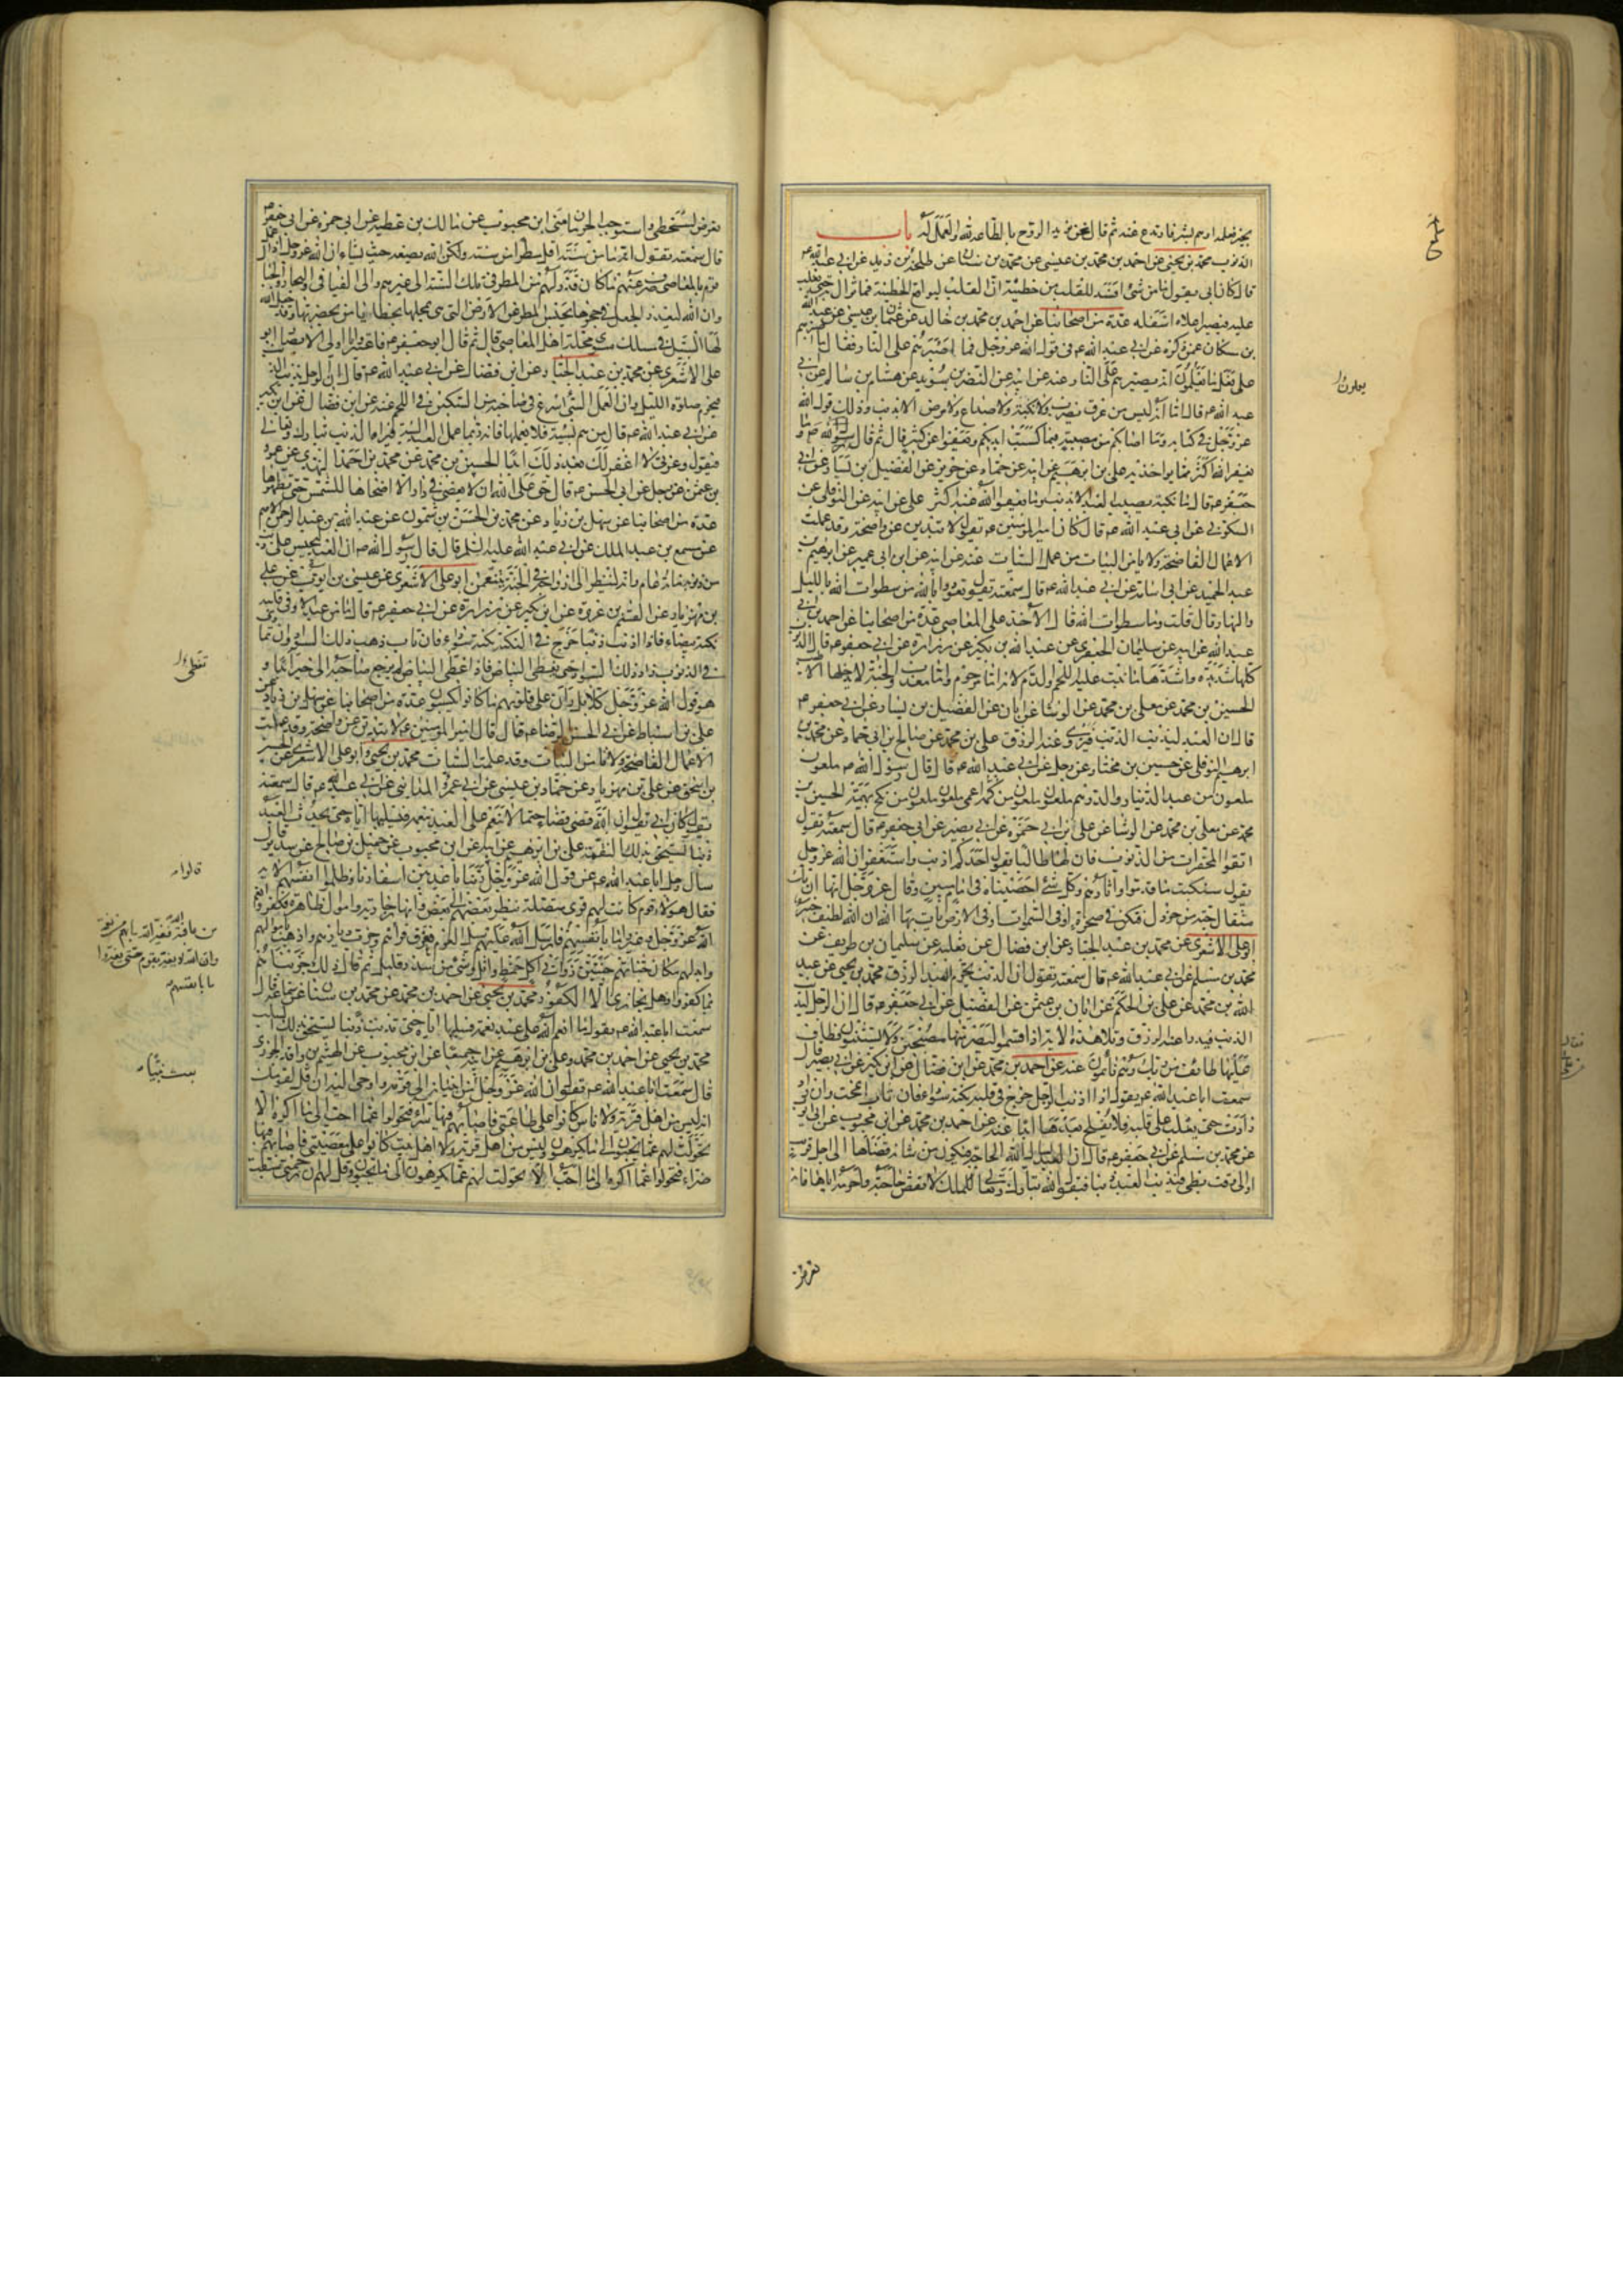 فارتدع عنه ثم قال نحن نؤيد الروح بالطاعة لله والعمل له باب
الذنوب محمد بن يحيى عن احمد بن محمد بن عيسى عن محمد بن سنان عن طلحة بن زيد عن ابي عبد الله ع
قال كان ابي يقول ما من شئ افسد للقلب من خطيئة ان القلب ليواقع الخطيئة فما تزال به حتى تغلب
عليه فيصير اعلاه اسفله عدة من اصحابنا عن احمد بن محمد بن خالد عن عثمان بن عيسى عن عبد الله
بن مسكان عمن ذكره عن ابي عبد الله ع في قول الله عز وجل فما اصبرهم على النار فقال ما اصبرهم
على فعل ما يعلمون انه يصيرهم الى النار عنه عن ابيه عن النضر بن سويد عن هشام بن سالم عن ابي
عبد الله ع قال اما انه ليس من عرق يضرب ولا نكبة ولا صداع ولا مرض الا بذنب وذلك قول الله
عز وجل في كتابه وما اصابكم من مصيبة فبما كسبت ايديكم ويعفوا عن كثير قال ثم قال وما
يعفو الله اكثر مما يواخذ به علي بن ابرهيم عن ابيه عن حماد عن حريز عن الفضيل بن يسار عن ابي
جعفر ع قال ما من نكبة يصيب العبد الا بذنب وما يعفو الله عنه اكثر علي عن ابيه عن النوفلي عن
السكوني عن ابي عبد الله ع قال كان امير المومنين ع يقول لا تبدين عن واضحة وقد عملت
الاعمال الفاضحة ولا يامن البيات من عمل السيات عنه عن ابيه عن ابن ابي عمير عن ابرهيم بن
عبد الحميد عن ابي اسامة عن ابي عبد الله ع قال سمعته يقول تعوذوا بالله من سطوات الله بالليل
والنهار قال قلت وما سطوات الله قال الاخذ على المعاصي عدة من اصحابنا عن احمد بن ابي
عبد الله عن ابيه عن سليمان الجعفري عن عبد الله بن بكير عن زرارة عن ابي جعفر ع قال الذنوب
كلها شديدة واشدها ما نبت عليه اللحم والدم لانه اما مرحوم واما معذب والجنة لا يدخلها الا طيب
الحسين بن محمد عن معلى بن محمد عن الوشا عن ابان عن الفضيل بن يسار عن ابي جعفر ع
قال ان العبد ليذنب الذنب فيزوى عنه الرزق علي بن محمد عن صالح بن ابي حماد عن محمد بن
ابرهيم النوفلي عن حسين بن مختار عن رجل عن ابي عبد الله ع قال قال رسول الله ص ملعون
ملعون من عبد الدينار والدرهم ملعون ملعون من كمه اعمى ملعون ملعون من نكح بهيمة الحسين بن
محمد عن معلى بن محمد عن الوشا عن علي بن ابي حمزة عن ابي بصير عن ابي جعفر ع قال سمعته يقول
اتقوا المحقرات من الذنوب فان لها طالبا يقول احدكم اذنب واستغفر ان الله عز وجل
يقول سنكتب ما قدموا واثارهم وكل شئ احصيناه في امام مبين وقال عز وجل انها ان تك
مثقال حبة من خردل فتكن في صخرة او في السموات او في الارض يات بها الله ان الله لطيف خبير
ابو علي الاشعري عن محمد بن عبد الجبار عن ابن فضال عن ثعلبة عن سليمان بن طريف عن
محمد بن مسلم عن ابي عبد الله ع قال سمعته يقول ان الذنب يحرم العبد الرزق محمد بن يحيى عن عبد
الله بن محمد عن علي بن الحكم عن ابان بن عثمن عن الفضيل عن ابي جعفر ع قال ان الرجل ليذنب
الذنب فيدرا عنه الرزق وتلا هذه الاية اذ اقسموا ليصرمنها مصبحين ولا يستثنون فطاف
عليها طائف من ربك وهم نائمون عنه عن احمد بن محمد عن ابن فضال عن ابن بكير عن ابي بصير قال
سمعت ابا عبد الله ع يقول اذا اذنب الرجل خرج في قلبه نكتة سوداء فان تاب انمحت وان زاد
زادت حتى يغلب على قلبه فلا يفلح بعدها ابدا عنه عن احمد بن محمد عن ابن محبوب عن ابي ايوب
عن محمد بن مسلم عن ابي جعفر ع قال ان العبد يسال الله الحاجة فيكون من شانه قضاها الى اجل قريب
او الى وقت بطئ فيذنب العبد ذنبا فيقول الله تبارك وتعالى للملك لا تقض حاجته واحرمه اياها فانه
يعلمون
تعرض
تعرض لسخطي واستوجب الحرمان مني ابن محبوب عن مالك بن عطية عن ابي حمزة عن ابي جعفر ع
قال سمعته يقول انه ما من سنة اقل مطرا من سنة ولكن الله يضعه حيث يشاء ان الله عز وجل اذا عمل
قوم بالمعاصي صرف عنهم ما كان قدر لهم من المطر في تلك السنة الى غيرهم والى الفيافي والبحار والجبال
وان الله ليعذب الجعل في حجرها بحبس المطر عن الارض التي هي بمحلها بخطايا من بحضرتها وقد جعل الله
لها السبيل في مسلك سوى محلة اهل المعاصي قال ثم قال ابو جعفر ع فاعتبروا يا اولي الابصار ابو
علي الاشعري عن محمد بن عبد الجبار عن ابن فضال عن ابي عبد الله ع قال ان الرجل يذنب الذنب
فيحرم صلوة الليل وان العمل السئ اسرع في صاحبه من السكين في اللحم عنه عن ابن فضال عن ابن بكير
عن ابي عبد الله ع قال من هم بسيئة فلا يعملها فانه ربما عمل العبد السيئة فيراه الرب تبارك وتعالى
فيقول وعزتي لا اغفر لك بعد ذلك ابدا الحسين بن محمد عن محمد بن احمد النهدي عن عمرو
بن عثمن عن رجل عن ابي الحسن ع قال حق على الله ان لا يعصى في دار الا اضحاها للشمس حتى تطهرها
عدة من اصحابنا عن سهل بن زياد عن محمد بن الحسن بن شمون عن عبد الله بن عبد الرحمن الاصم
عن مسمع بن عبد الملك عن ابي عبد الله عليه السلم قال قال رسول الله ص ان العبد ليحبس على ذنب
من ذنوبه مائة عام وانه لينظر الى ازواجه في الجنة يتنعمن ابو علي الاشعري عن عيسى بن ايوب عن علي
بن مهزيار عن القسم بن عروة عن ابن بكير عن زرارة عن ابي جعفر ع قال ما من عبد الا وفي قلبه
نكتة بيضاء فاذا اذنب ذنبا خرج في النكتة نكتة سوداء فان تاب ذهب ذلك السواد وان تمادى
في الذنوب زاد ذلك السواد حتى يغطي البياض فاذا غطى البياض لم يرجع صاحبه الى خير ابدا و
هو قول الله عز وجل كلا بل ران على قلوبهم ما كانوا يكسبون عدة من اصحابنا عن سهل بن زياد عن
علي بن اسباط عن ابي الحسن الرضا ع قال قال امير المومنين ع لا تبدين عن واضحة وقد عملت
الاعمال الفاضحة ولا تامن البيات وقد عملت السيات محمد بن يحيى وابو علي الاشعري عن الحسين
بن اسحق عن علي بن مهزيار عن حماد بن عيسى عن ابي عمرو المدايني عن ابي عبد الله ع قال سمعته
يقول كان ابي يقول ان الله قضى قضاء حتما الا ينعم على العبد بنعمة فيسلبها اياه حتى يحدث العبد
ذنبا يستحق بذلك النقمة علي بن ابرهيم عن ابيه عن ابن محبوب عن جميل بن صالح عن سدير قال
سال رجل ابا عبد الله ع عن قول الله عز وجل ربنا باعد بين اسفارنا وظلموا انفسهم الاية
فقال هولاء قوم كانت لهم قرى متصلة ينظر بعضهم الى بعض وانهار جارية واموال ظاهرة فكفروا نعم
الله عز وجل وغيروا ما بانفسهم فارسل الله عليهم سيل العرم فغرق قراهم وخرب ديارهم واذهب باموالهم
وابدلهم مكان جناتهم جنتين ذواتي اكل خمط واثل وشئ من سدر قليل ثم قال ذلك جزيناهم
بما كفروا وهل نجازي الا الكفور محمد بن يحيى عن احمد بن محمد عن محمد بن سنان عن سماعة قال
سمعت ابا عبد الله ع يقول ما انعم الله على عبد نعمة فسلبها اياه حتى يذنب ذنبا يستحق بذلك السلب
محمد بن يحيى عن احمد بن محمد وعلي بن ابرهيم عن ابيه جميعا عن ابن محبوب عن الهيثم بن واقد الجزري
قال سمعت ابا عبد الله ع يقول ان الله عز وجل بعث نبيا من انبيائه الى قومه واوحى اليه ان قل لقومك
انه ليس من اهل قرية ولا ناس كانوا على طاعتي فاصابهم فيها سراء فتحولوا عما احب الى ما اكره الا
تحولت لهم عما يحبون الى ما يكرهون وليس من اهل قرية ولا اهل بيت كانوا على معصيتي فاصابهم فيها
ضراء فتحولوا عما اكره الى ما احب الا تحولت لهم عما يكرهون الى ما يحبون وقل لهم ان رحمتي سبقت
تغطى
قالوا
من عافية الله فغير الله ما بهم من نعمة
وان الله لا يغير ما بقوم حتى يغيروا
ما بانفسهم
بعث نبيا